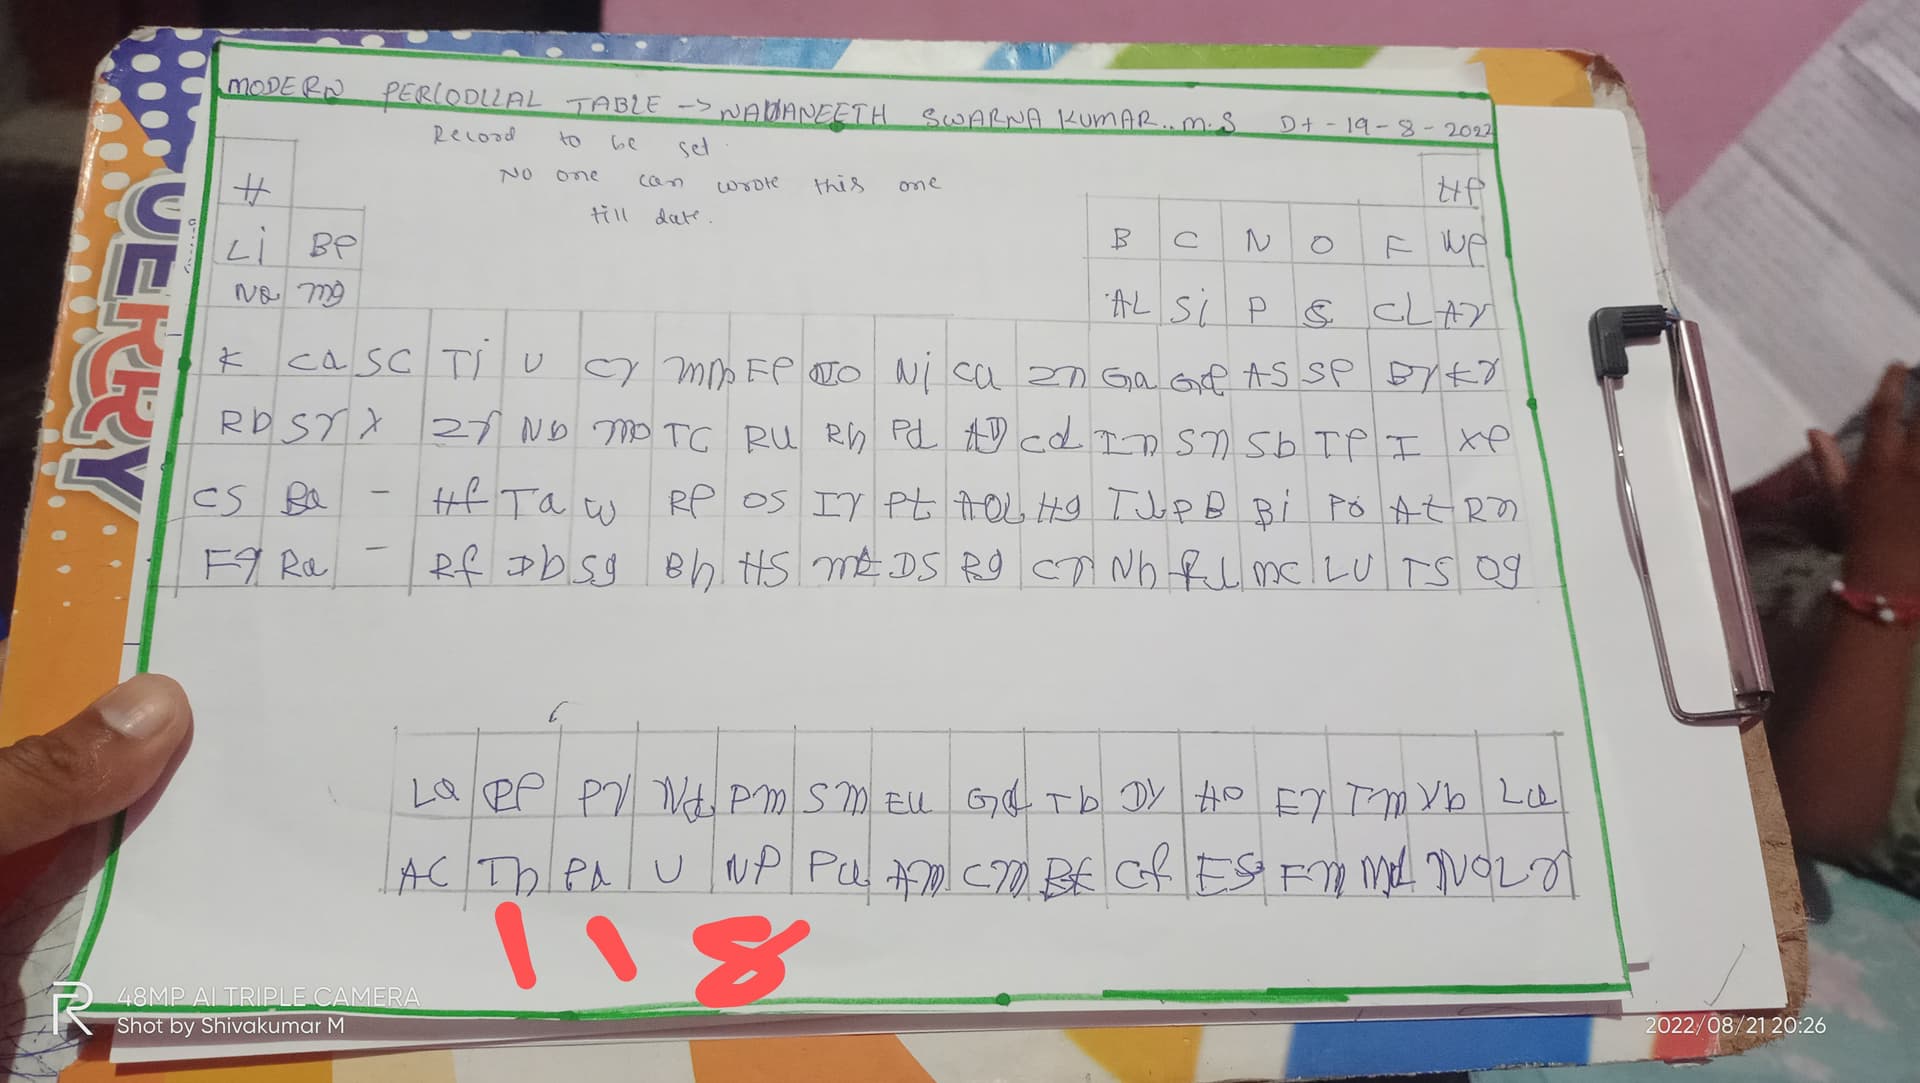 MODERN PERIODICAL TABLE -> NAVANEETH SWARNA KUMAR..M.S Dt - 19-8-2022
Record to be set.
No one can wrote this one
till date.
H HP
Li BP B C N O F NP
Na mg AL Si P S CL Ar
K Ca SC Ti V Cr mn FP CO Ni Cu Zn Ga GP AS SP Br Kr
Rb Sr Y Zr Nb mo TC RU Rh Pd Ag Cd In Sn Sb TP I XP
CS Ba - Hf Ta W RP OS Ir Pt AU Hg TL PB Bi Po At Rn
Fr Ra - Rf Db Sg Bh HS mt DS Rg Cn Nh FL mC LV TS Og
La CP Pr Nd Pm Sm EU Gd Tb DY HO Er Tm Yb Lu
AC Th Pa U NP Pu Am Cm BK Cf ES Fm Md NO Lr
118
48MP AI TRIPLE CAMERA
Shot by Shivakumar M
2022/08/21 20:26
UERRY